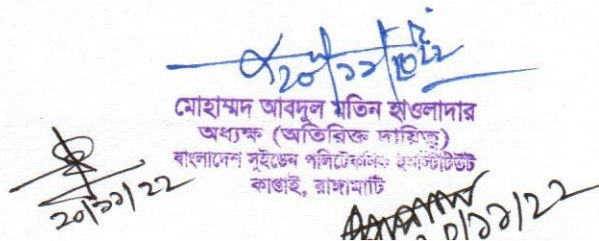 ২০/১১/২০২২
মোহাম্মদ আবদুল মতিন হাওলাদার
অধ্যক্ষ (অতিরিক্ত দায়িত্ব)
বাংলাদেশ সুইডেন পলিটেকনিক ইনস্টিটিউট
কাপ্তাই, রাঙ্গামাটি
২০/১১/২২
২০/১১/২২